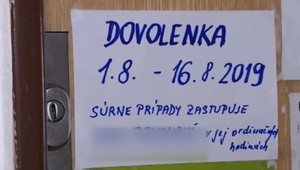 DOVOLENKA
1.8. - 16.8.2019
SÚRNE PRÍPADY ZASTUPUJE
v jej ordinačných
hodinách